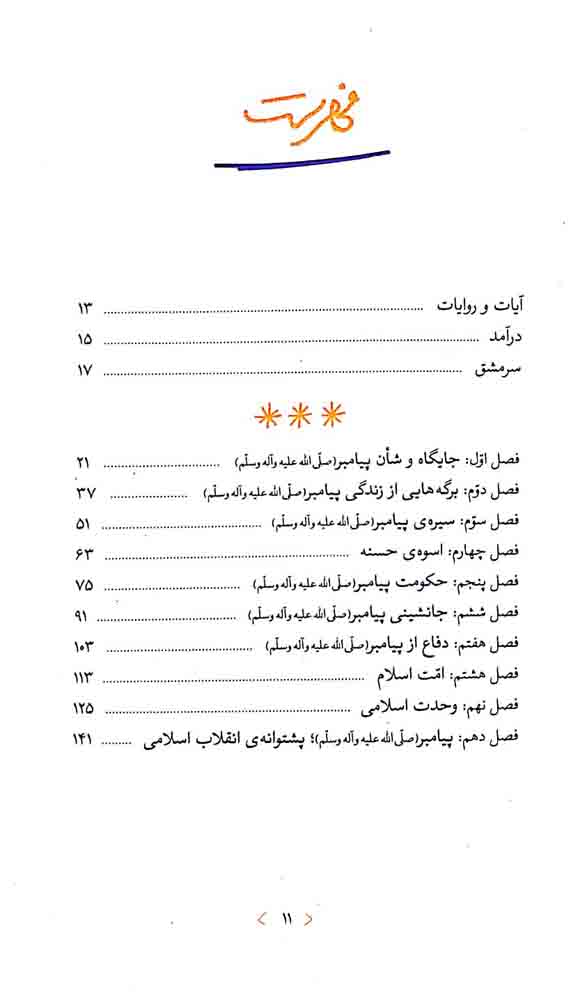 فهرست
آیات و روایات ........................ ۱۳
درآمد ........................ ۱۵
سرمشق ........................ ۱۷
فصل اوّل: جایگاه و شأن پیامبر(صلّی‌الله علیه وآله وسلّم) ........................ ۲۱
فصل دوّم: برگه‌هایی از زندگی پیامبر(صلّی‌الله علیه وآله وسلّم) ........................ ۳۷
فصل سوّم: سیره‌ی پیامبر(صلّی‌الله علیه وآله وسلّم) ........................ ۵۱
فصل چهارم: اسوه‌ی حسنه ........................ ۶۳
فصل پنجم: حکومت پیامبر(صلّی‌الله علیه وآله وسلّم) ........................ ۷۵
فصل ششم: جانشینی پیامبر(صلّی‌الله علیه وآله وسلّم) ........................ ۹۱
فصل هفتم: دفاع از پیامبر(صلّی‌الله علیه وآله وسلّم) ........................ ۱۰۳
فصل هشتم: امّت اسلام ........................ ۱۱۳
فصل نهم: وحدت اسلامی ........................ ۱۲۵
فصل دهم: پیامبر(صلّی‌الله علیه وآله وسلّم)؛ پشتوانه‌ی انقلاب اسلامی ......... ۱۴۱
< ۱۱ >